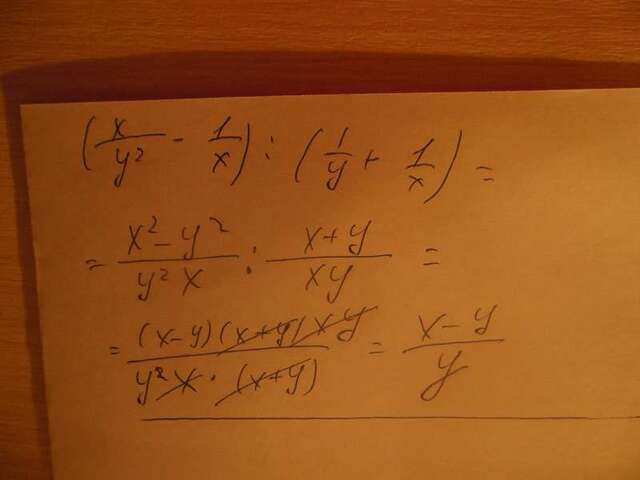 (x/y² - 1/x) : (1/y + 1/x) =
= (x² - y²)/(y² x) : (x+y)/(xy) =
= ((x-y)(x+y) xy)/(y² x · (x+y)) = (x-y)/y